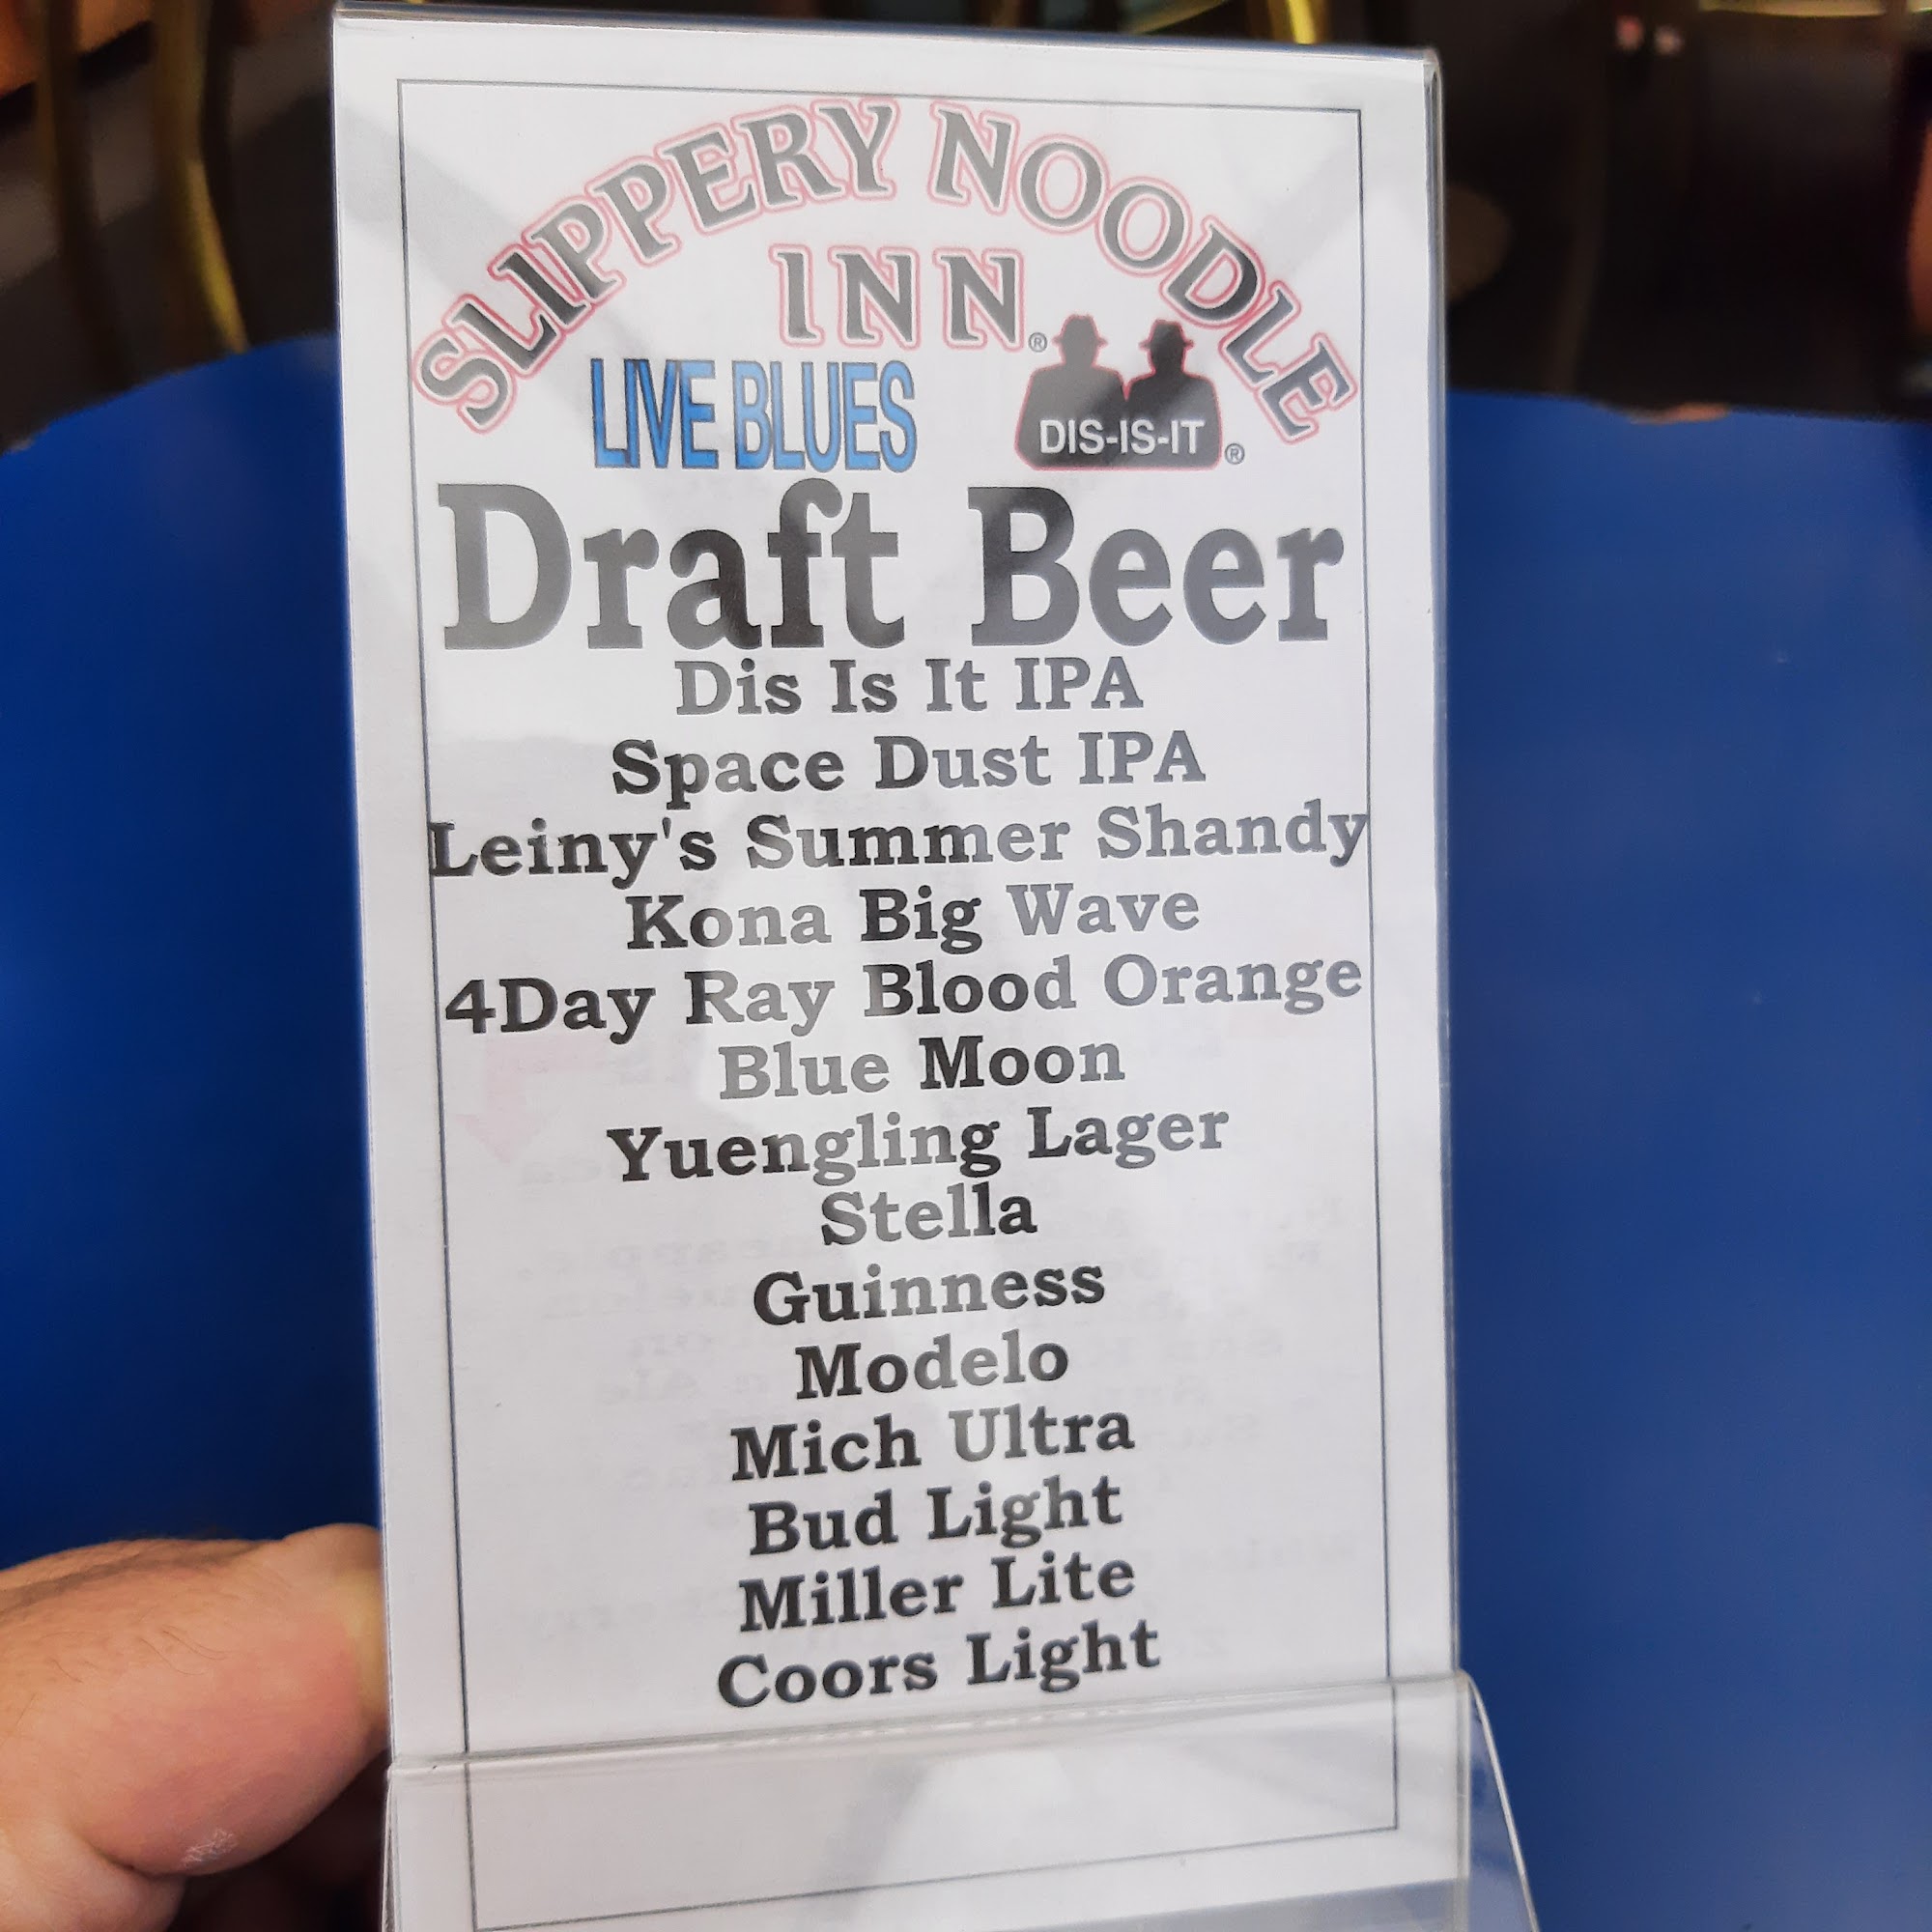 SLIPPERY NOODLE
INN®
LIVE BLUES
DIS-IS-IT®
Draft Beer
Dis Is It IPA
Space Dust IPA
Leiny's Summer Shandy
Kona Big Wave
4Day Ray Blood Orange
Blue Moon
Yuengling Lager
Stella
Guinness
Modelo
Mich Ultra
Bud Light
Miller Lite
Coors Light